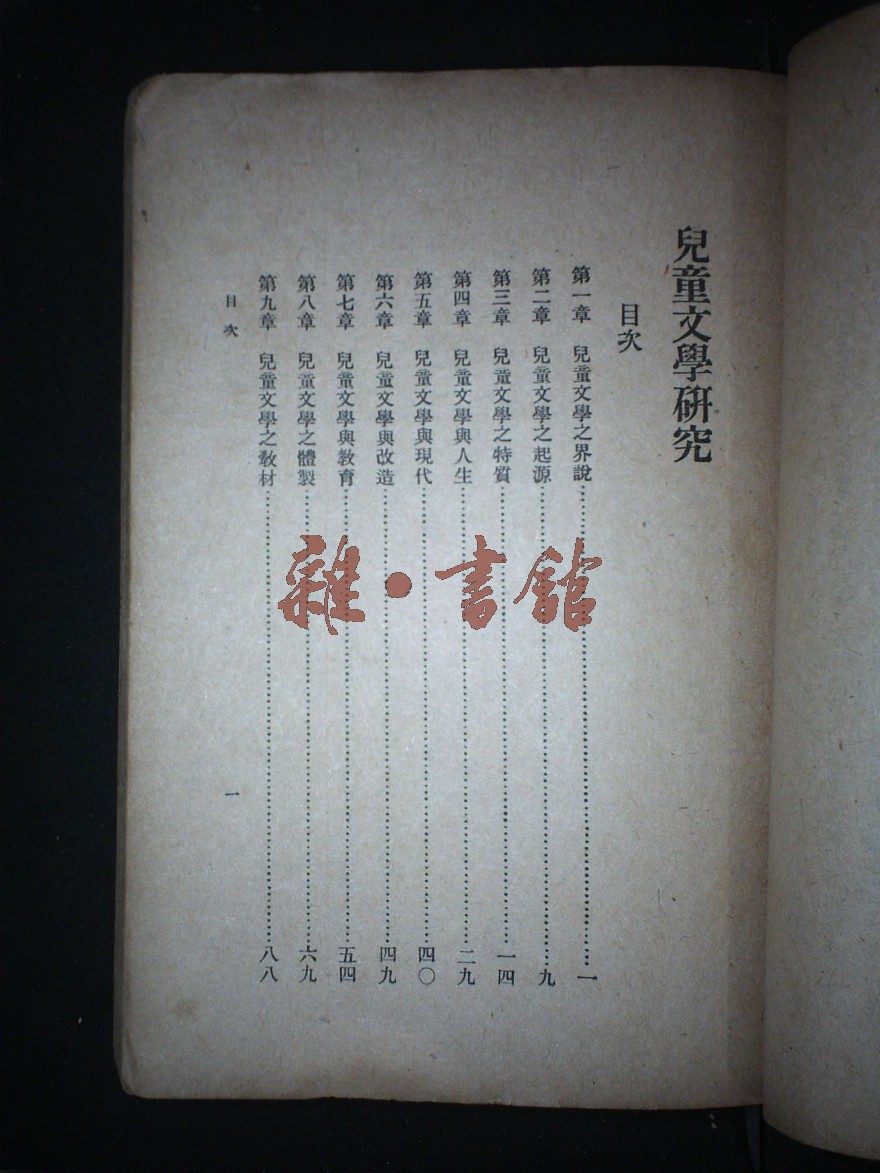 兒童文學研究
目次
第一章　兒童文學之界說……一
第二章　兒童文學之起源……九
第三章　兒童文學之特質……一四
第四章　兒童文學與人生……二九
第五章　兒童文學與現代……四〇
第六章　兒童文學與改造……四九
第七章　兒童文學與教育……五四
第八章　兒童文學之體製……六九
第九章　兒童文學之教材……八八
目次
一
雜·書館